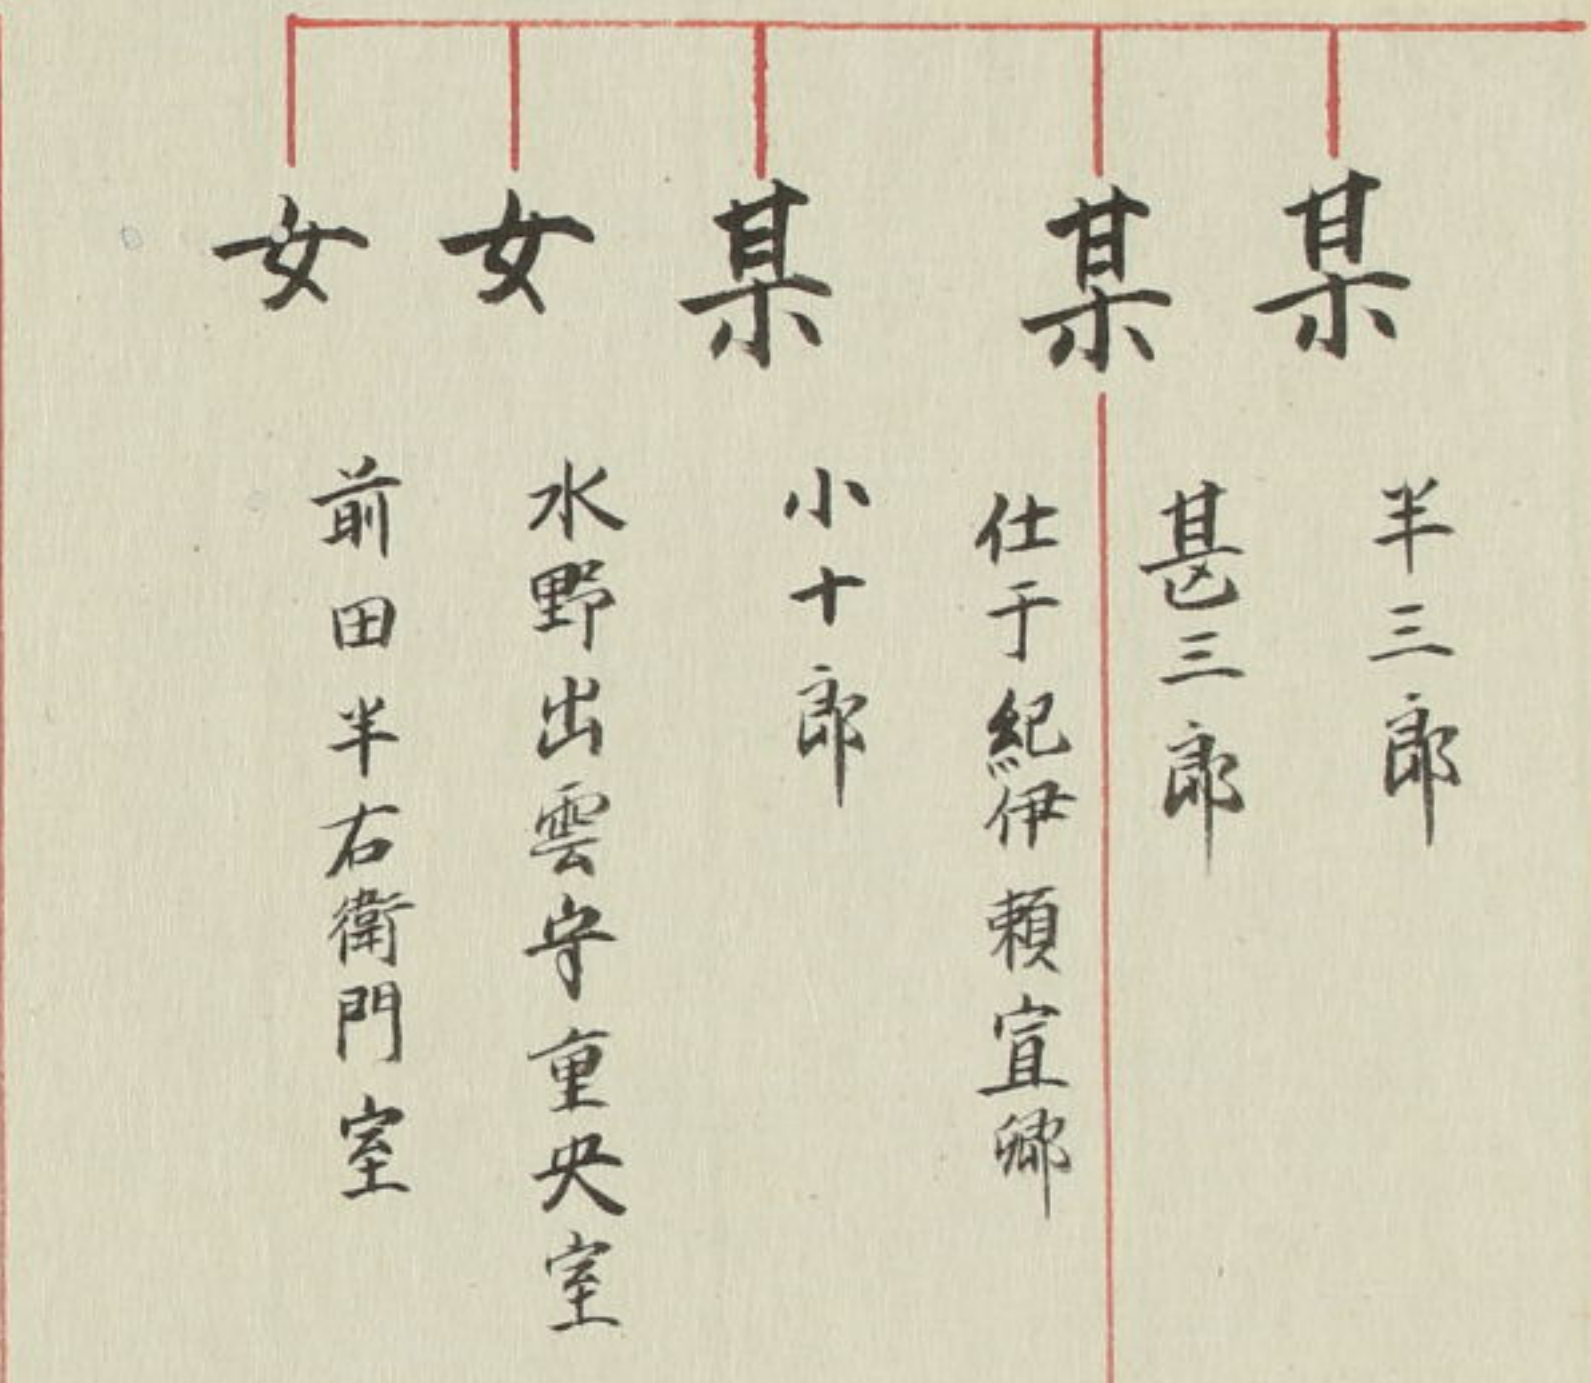 某
半三郎
某
甚三郎
仕于紀伊頼宣卿
某
小十郎
女
水野出雲守重央室
女
前田半右衛門室